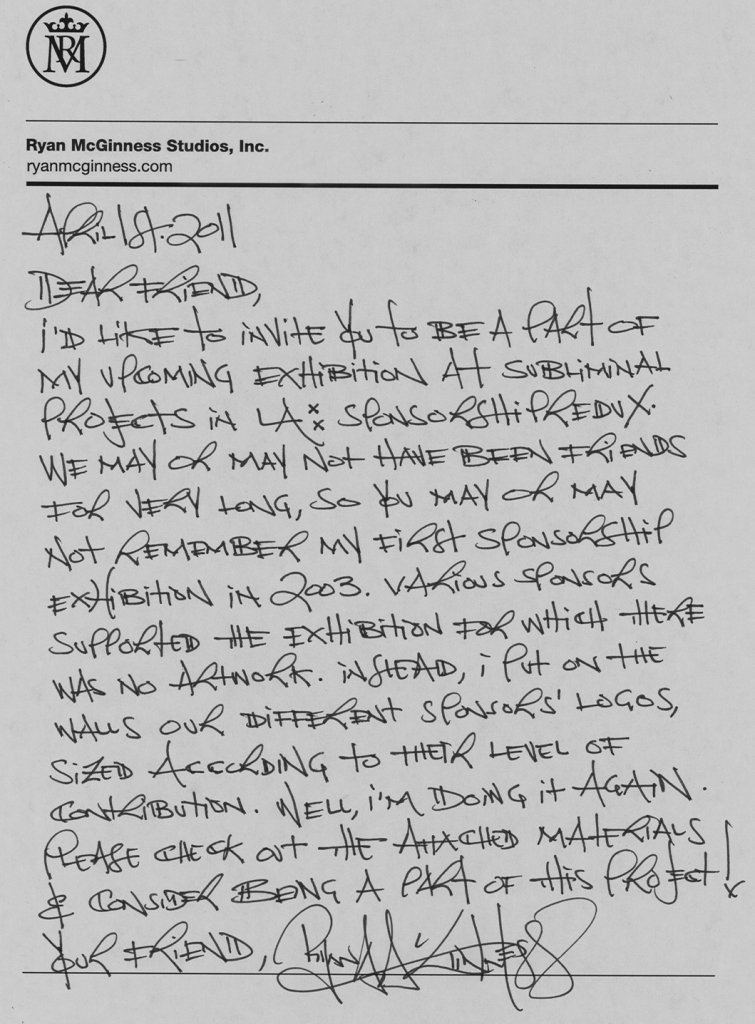 RM
Ryan McGinness Studios, Inc.
ryanmcginness.com
APRIL 1ST. 2011
DEAR FRIEND,
I'D LIKE TO INVITE YOU TO BE A PART OF
MY UPCOMING EXHIBITION AT SUBLIMINAL
PROJECTS IN LA: SPONSORSHIP REDUX.
WE MAY OR MAY NOT HAVE BEEN FRIENDS
FOR VERY LONG, SO YOU MAY OR MAY
NOT REMEMBER MY FIRST SPONSORSHIP
EXHIBITION IN 2003. VARIOUS SPONSORS
SUPPORTED THE EXHIBITION FOR WHICH THERE
WAS NO ARTWORK. INSTEAD, I PUT ON THE
WALLS OUR DIFFERENT SPONSORS' LOGOS,
SIZED ACCORDING TO THEIR LEVEL OF
CONTRIBUTION. WELL, I'M DOING IT AGAIN.
PLEASE CHECK OUT THE ATTACHED MATERIALS
& CONSIDER BEING A PART OF THIS PROJECT!
YOUR FRIEND, RYAN McGINNESS